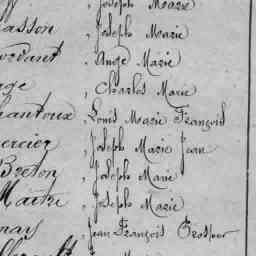 Joseph Marie
asson , Joseph Marie
, Ange Marie
ge , Charles Marie
hantoux , Louis Marie François
ercier , Joseph Marie Jean
Breton , Joseph Marie
Maître , Joseph Marie
, Jean François Prosper
Marie